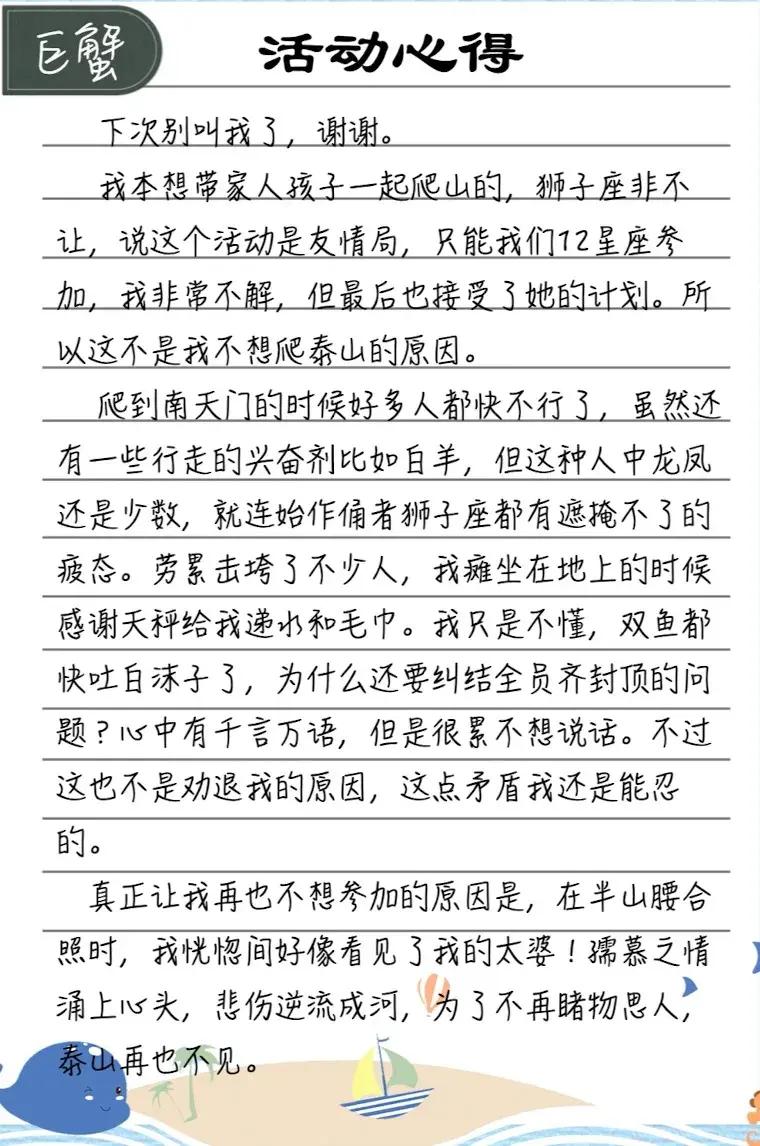 巨蟹
活动心得
下次别叫我了，谢谢。
我本想带家人孩子一起爬山的，狮子座非不
让，说这个活动是友情局，只能我们12星座参
加，我非常不解，但最后也接受了她的计划。所
以这不是我不想爬泰山的原因。
爬到南天门的时候好多人都快不行了，虽然还
有一些行走的兴奋剂比如白羊，但这种人中龙凤
还是少数，就连始作俑者狮子座都有遮掩不了的
疲态。劳累击垮了不少人，我瘫坐在地上的时候
感谢天秤给我递水和毛巾。我只是不懂，双鱼都
快吐白沫子了，为什么还要纠结全员齐封顶的问
题？心中有千言万语，但是很累不想说话。不过
这也不是劝退我的原因，这点矛盾我还是能忍
的。
真正让我再也不想参加的原因是，在半山腰合
照时，我恍惚间好像看见了我的太婆！孺慕之情
涌上心头，悲伤逆流成河，为了不再睹物思人，
泰山再也不见。